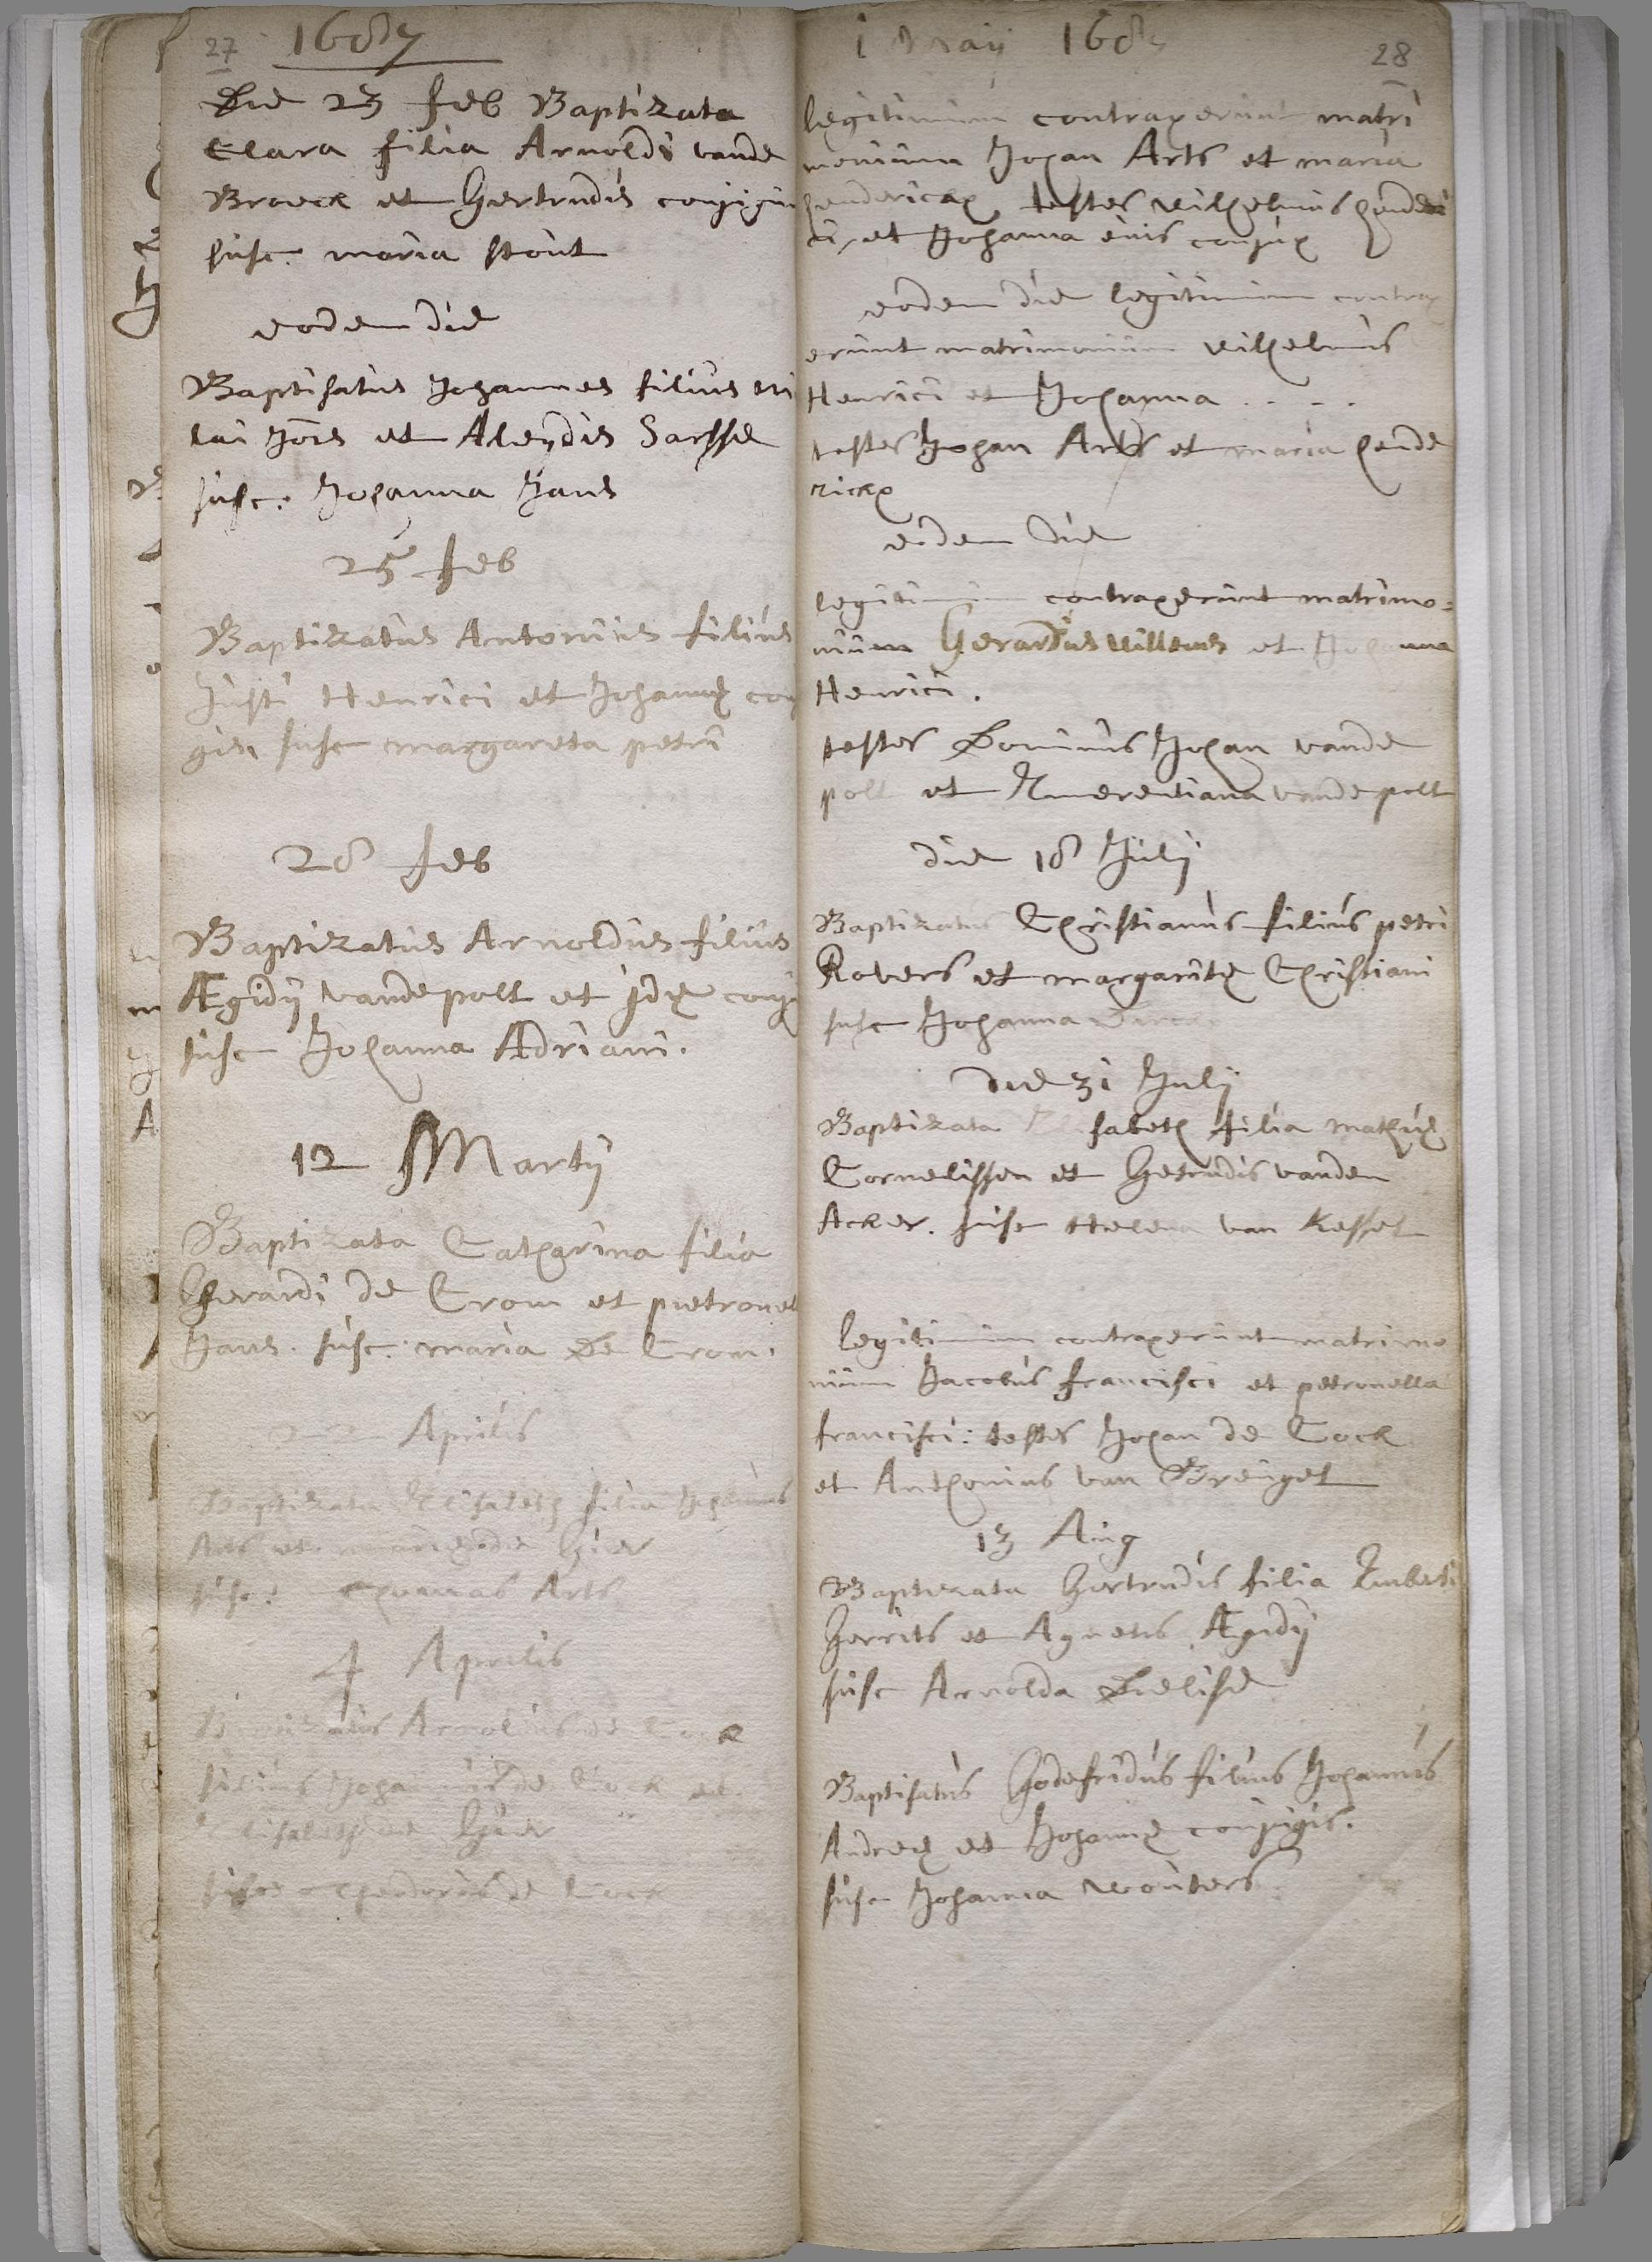 27 1687
Die 23 feb Baptizata
Clara filia Arnoldi vande
Broeck et Gertrudis conjigu
susc. maria stout
eodem die
Baptisatus Johannes filius ni
lai Jois et Aleydis Sarsse
susc: Johanna Hans
25 feb
Baptizatus Antonius filius
Justi Henrici et Johannæ con
gis, susc margareta petri
28 feb
Baptizatus Arnoldus filius
Ægidij vandepolt et Idæ conj
susc Johanna Adriani.
12 Martij
Baptizata Catharina filia
Gerardi de Crom et pietronel
Hans. susc: maria De Crom.
22 Aprilis
Baptizata Elisabeth filia Johannis
Arts et mariæ de Gier
susc: Thomas Arts
4 Aprilis
Baptizatus Arnoldus de Cock
filius Johannis de Cock et
Elisabeth de Gier
susc Theodorus de Cock
1 Maij 1687 28
legitimum contraxerunt matri
monium Johan Arts et maria
hendericks testes wilhelmus henderi
ci, et Johanna eius conjux
eodem die legitimum contrax
erunt matrimonium wilhelmus
Henrici et Johanna . . - .
testes Johan Arts et maria hende
rickx
eodem die
legitimum contraxerunt matrimo=
nium Gerardus willems et Johanna
Henrici.
testes Dominus Johan vande
polt et Emerentiana vandepolt
die 18 Julij
Baptizatus Christianus filius petri
Rovers et margaritæ Christiani
susc Johanna
die 31 Julij
Baptizata Elisabeth filia mathiæ
Cornelissen et Getrudis vanden
Acker. susc Helena van Kessel
legitimum contraxerunt matrimo
nium Jacobus francisci et petronella
francisci: testes Johan de Cock
et Anthonius van Breugel
13 Aug
Baptizata Gertrudis filia Lamberti
Gerrits et Agnetis Ægidij
susc Arnolda Dielise
Baptisatus Godefridus filius Johannis
Andreæ et Johannæ conjugis.
susc Johanna wouters